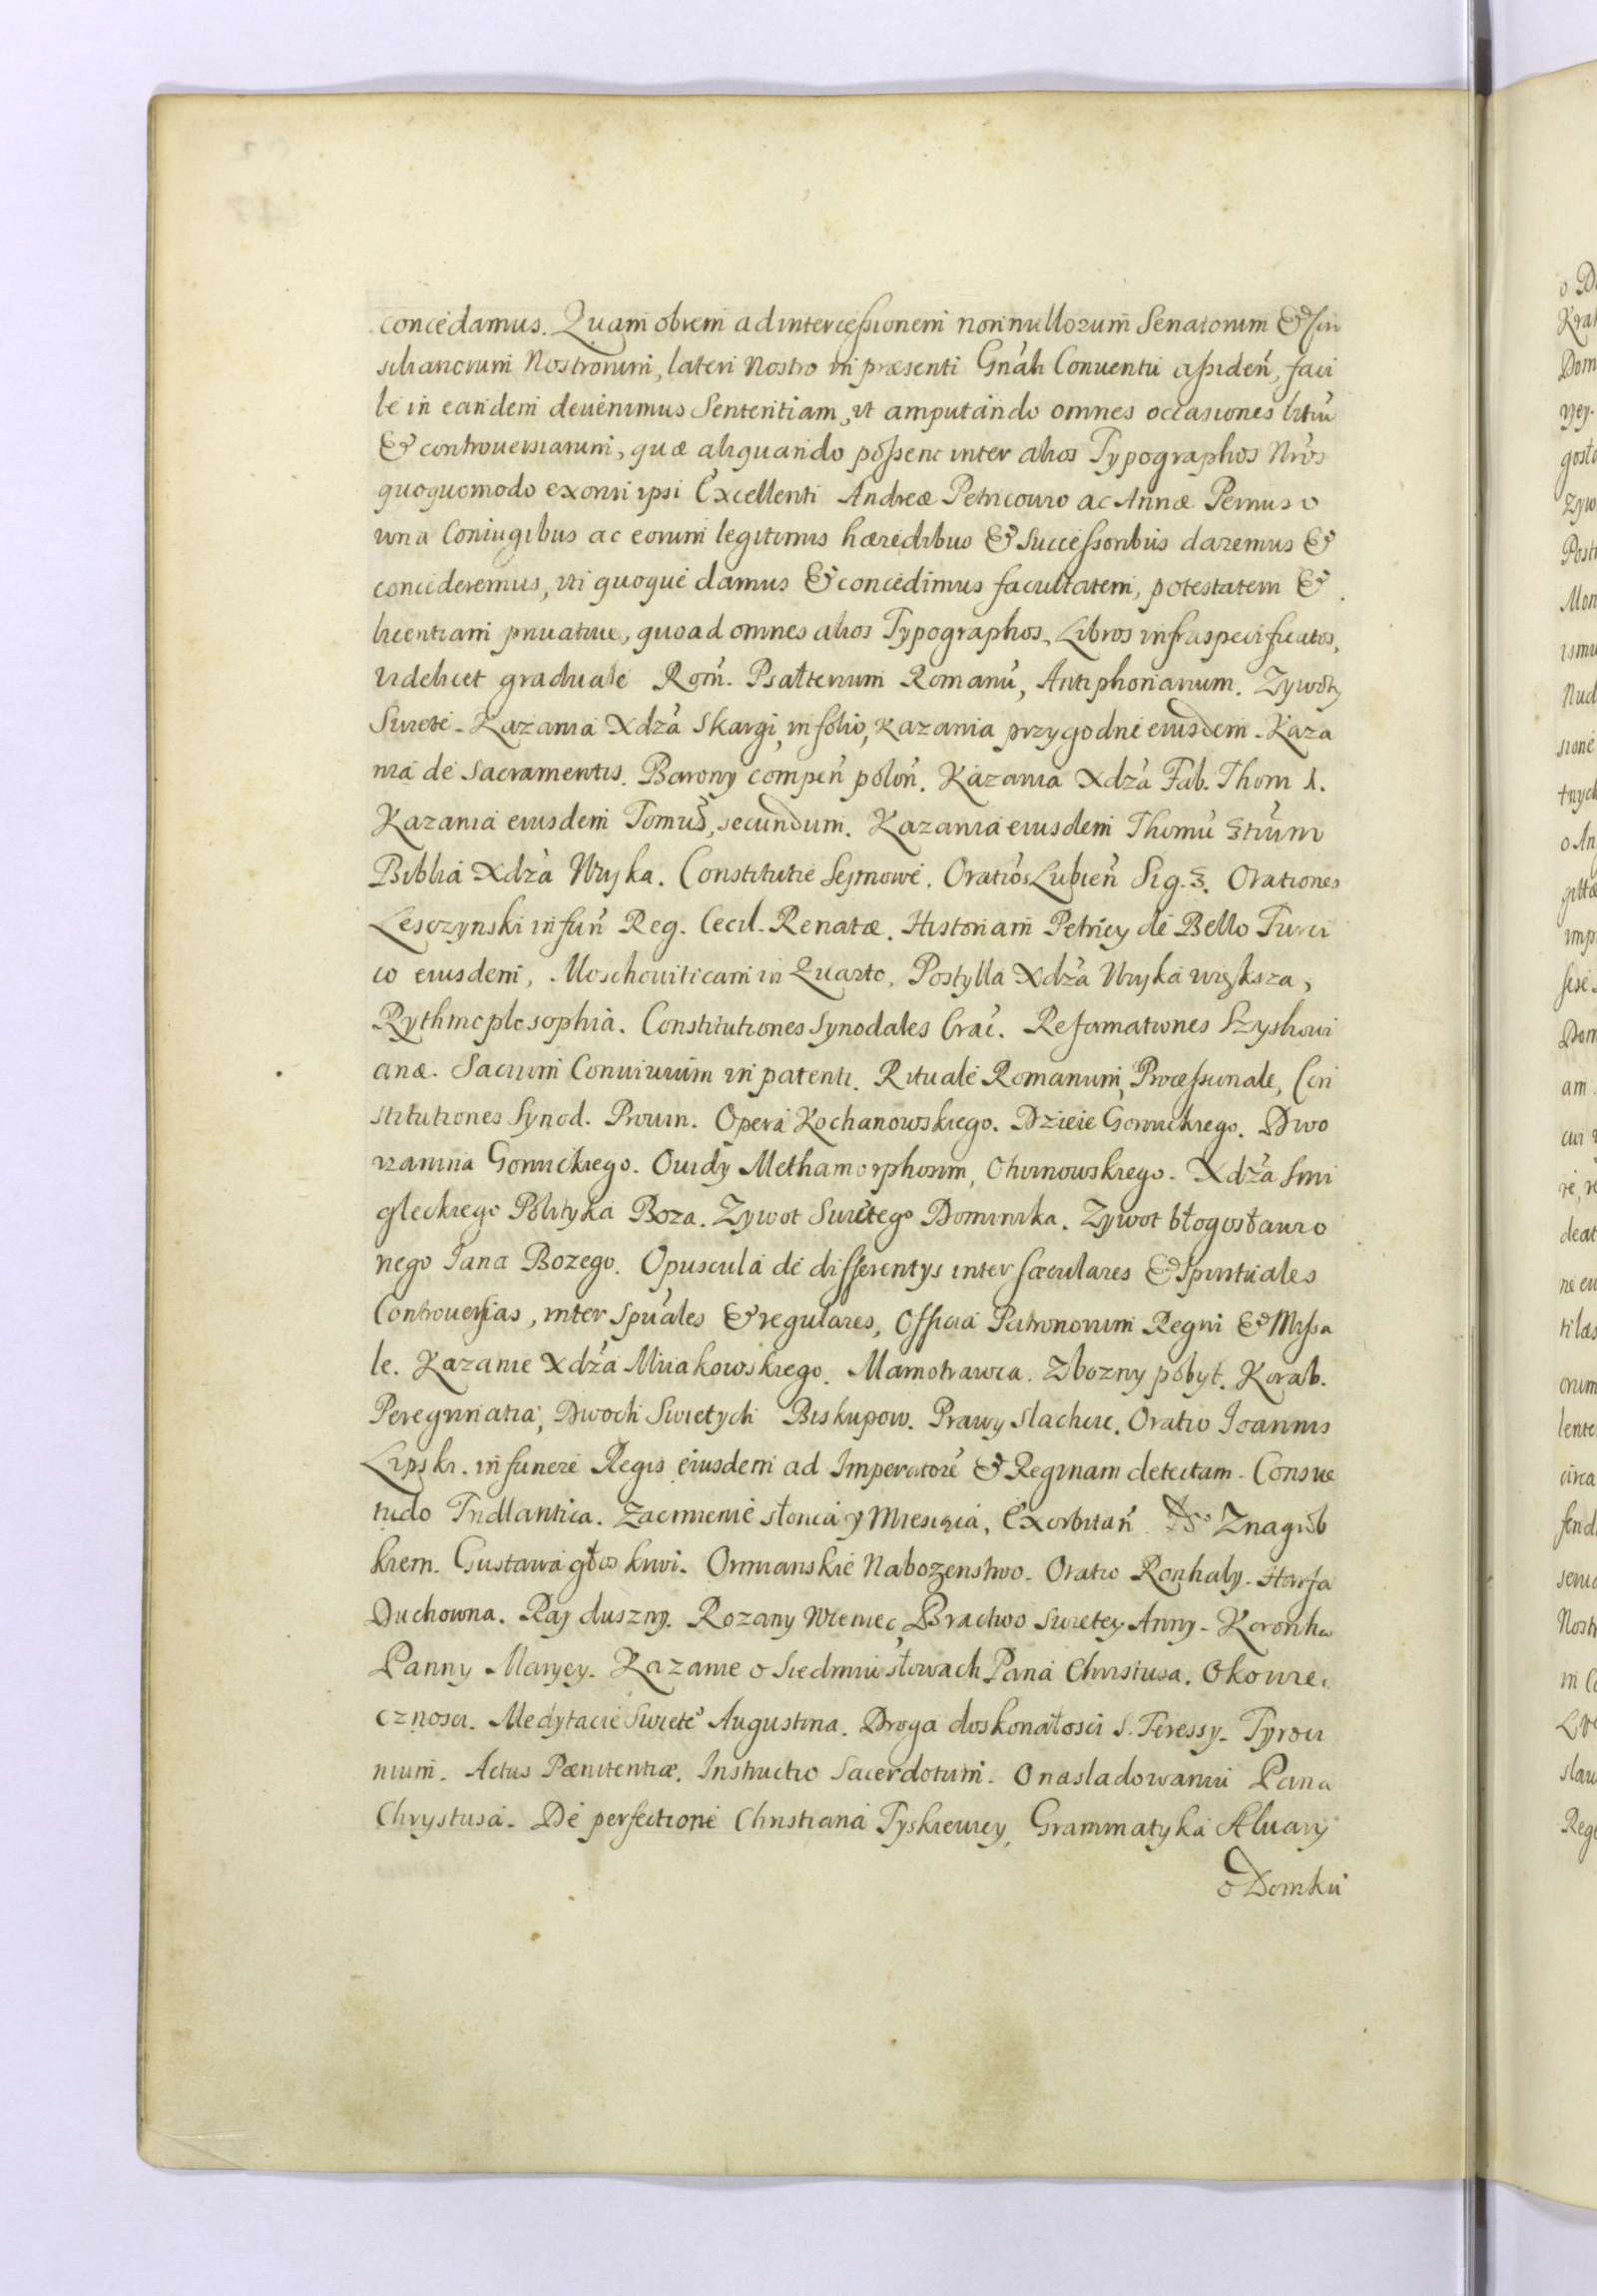 concedamus. Quam obrem ad intercessionem nonnullorum Senatorum & Con
siliariorum Nostrorum, lateri Nostro in præsenti Gńali Conuentu assideń, faci
le in eandem deuenimus Sententiam, ut amputando omnes occasiones litiũ
& controuersiarum, quæ aliquando possent inter alios Typographos Nrős
quoquomodo exoriri ipsi Excellenti Andreæ Petricouio ac Annæ Pernuso
una Coniugibus ac eorum legitimis hæredibus & Successoribus daremus &
concederemus, uti quoque damus & concedimus facultatem, potestatem &
licentiam priuatiue, quoad omnes alios Typographos, Libros infraspecificatos,
videlicet graduale Rom̃. Psałterium Romanũ, Antiphonarium. Zywoty
Swiete. Kazania Xdza Skargi, in folio, Kazania przygodne eiusdem. Kaza
nia de Sacramentis. Barony compeń poloń. Kazania Xdza Fab. Thom 1.
Kazania eiusdem Tomuš, secundum. Kazania eiusdem Thomũ 3tium
Biblia Xdza Wujka. Constitutie Sejmowe. Oratiős Lubień Sig. 3. Orationes
Lesczynski in fuń Reg. Cecil. Renatæ. Historiam Petricy de Bello Turci
co eiusdem, Moschouiticam in Quarto, Postylla Xdza Wujka większa,
Rythmoplosophia. Constitutiones Synodales Crac̃. Reformationes Szyskoui
anæ. Sacrum Conuiuium in patenti. Rituale Romanum, Processionale, Con
stitutiones Synod. Prouin. Opera Kochanowskiego. Dzieie Gornickiego. Dwo
rzanina Gornickiego. Ouidy Methamorphosim, Otwinowskiego. Xdza Smi
gleckiego Polityka Boza. Zywot Swiętego Dominika. Zywot błogosławio
nego Iana Bozego. Opuscula de differentys inter sæculares & Spirituales
Controuersias, inter Spúales & regulares, Officia Patronorum Regni & Missa
le. Kazanie Xdza Miiakowskiego. Mamotrawca. Zbozny pobyt. Korab.
Peregrinatia, Dwoch Swietych Biskupow. Prawy slachcic. Oratio Ioannis
Lipski. in funere Regis eiusdem ad Imperatorẽ & Reginam detectam. Consue
tudo Tridlantica. Zacmienie słonca y Miesiąca, Exorbitań Znagrob
kiem. Gustawa głos krwi. Ormianskie Nabozenstwo. Oratio Ronhaly. Harfa
Duchowna. Raj duszny. Rozany Wieniec, Bractwo swietey Anny. Koronka
Panny Maryey. Kazanie o Siedmiu słowach Pana Christusa. O kowie
cznosci. Medytacie Swietẽ Augustina. Droga doskonałosci S. Teressy. Tyroci
nium. Actus Pænitentiæ. Instructio Sacerdotum. O nasladowaniu Pana
Chrystusa. De perfectione Christiana Tyskieuicy, Grammatyka Aluary
o Domku